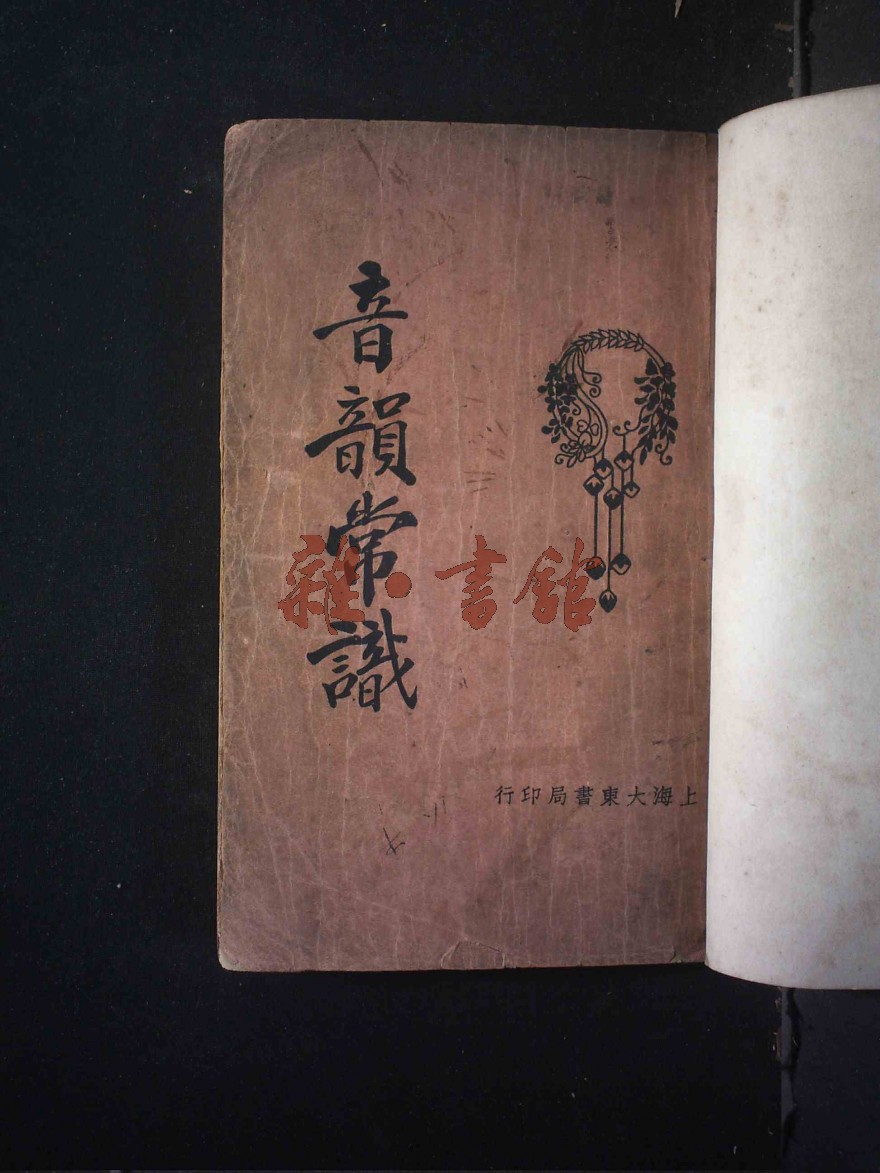 音韻常識
雜·書館
上海大東書局印行